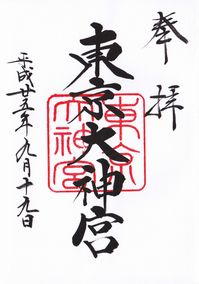 奉拝
東京大神宮
東京
大神宮
平成廿五年九月十九日